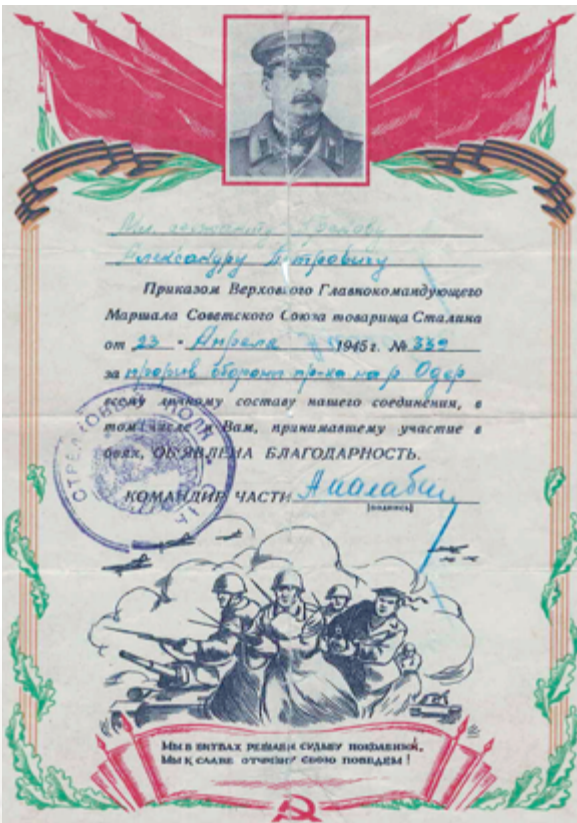 Мл. сержанту
Александру Петровичу
Приказом Верховного Главнокомандующего
Маршала Советского Союза товарища Сталина
от 23 " Апреля 1945 г. № 339
за прорыв обороны пр-ка на р. Одер
всему личному составу нашего соединения, в
том числе и Вам, принимавшему участие в
боях, ОБЪЯВЛЕНА БЛАГОДАРНОСТЬ.
КОМАНДИР ЧАСТИ
[подпись]
СТРЕЛКОВЫЙ ПОЛК
МЫ В БИТВАХ РЕШАЕМ СУДЬБУ ПОКОЛЕНИЙ,
МЫ К СЛАВЕ ОТЧИЗНУ СВОЮ ПОВЕДЕМ!